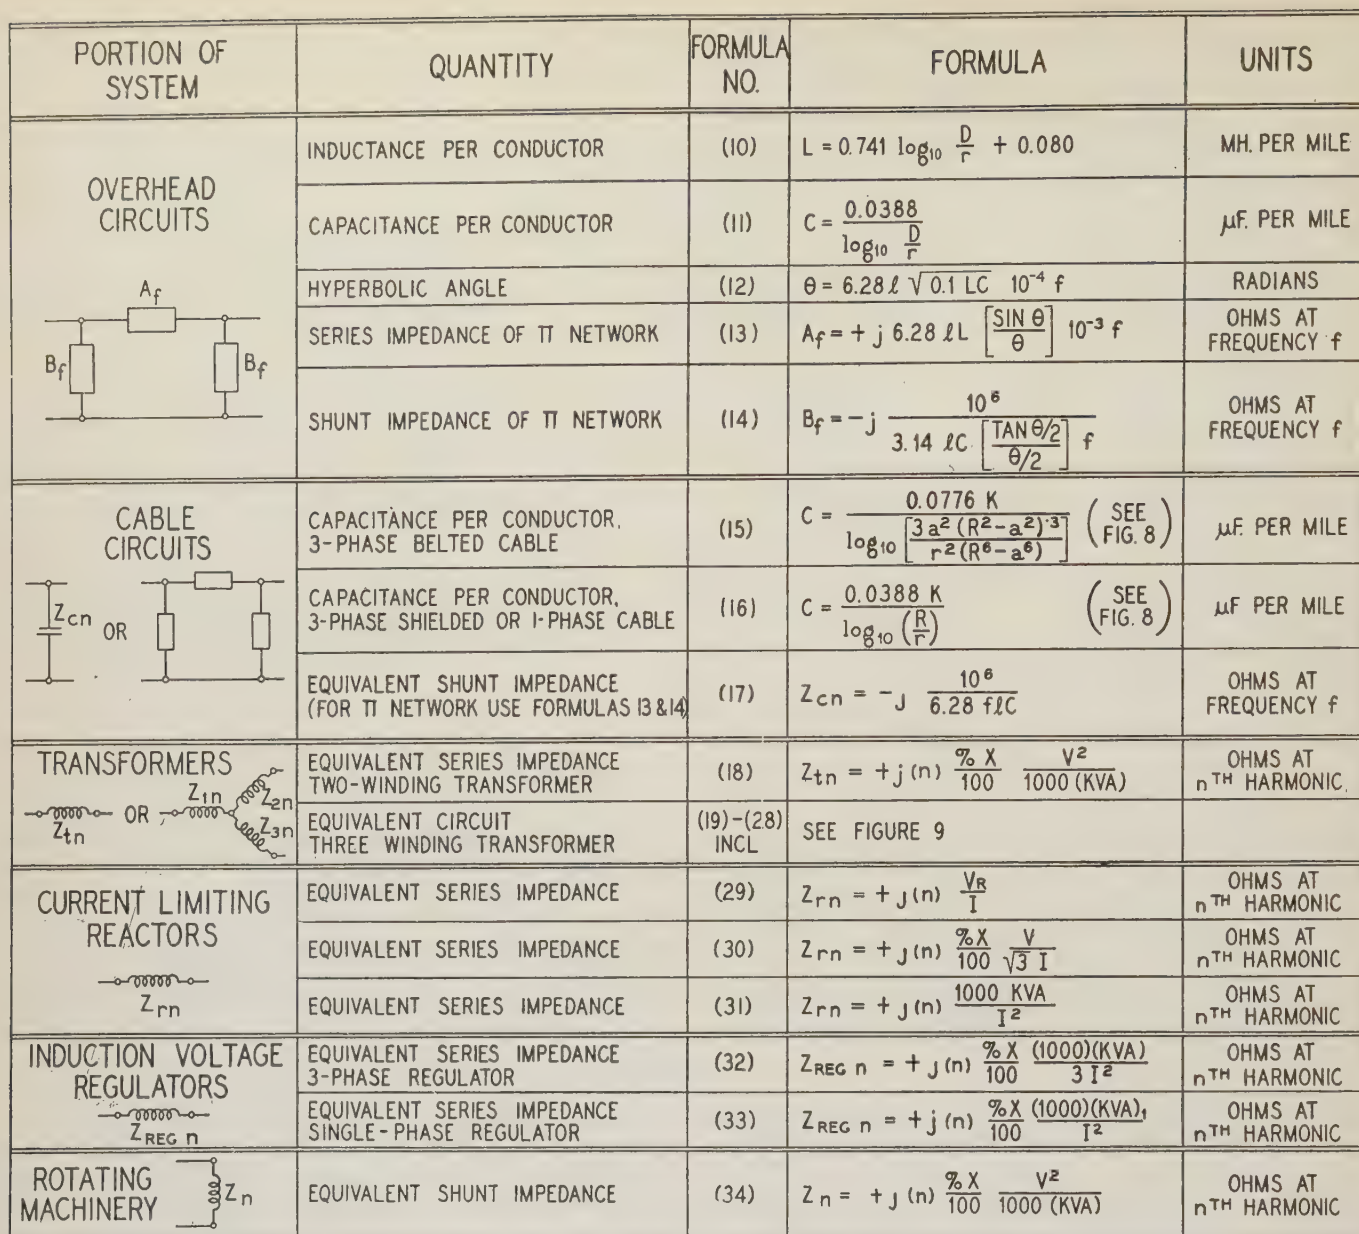 PORTION OF SYSTEM | QUANTITY | FORMULA NO. | FORMULA | UNITS
OVERHEAD CIRCUITS
A_f
B_f
B_f
INDUCTANCE PER CONDUCTOR | (10) | L = 0.741 log₁₀ D/r + 0.080 | MH. PER MILE
CAPACITANCE PER CONDUCTOR | (11) | C = 0.0388 / log₁₀ D/r | μF. PER MILE
HYPERBOLIC ANGLE | (12) | θ = 6.28 ℓ √(0.1 LC) 10⁻⁴ f | RADIANS
SERIES IMPEDANCE OF π NETWORK | (13) | A_f = + j 6.28 ℓL [SIN θ / θ] 10⁻³ f | OHMS AT FREQUENCY f
SHUNT IMPEDANCE OF π NETWORK | (14) | B_f = - j 10⁶ / 3.14 ℓC [TAN θ/2 / θ/2] f | OHMS AT FREQUENCY f
CABLE CIRCUITS
Z_cn OR
CAPACITANCE PER CONDUCTOR, 3-PHASE BELTED CABLE | (15) | C = 0.0776 K / log₁₀ [3a² (R²-a²)·³ / r² (R⁶-a⁶)] (SEE FIG. 8) | μF. PER MILE
CAPACITANCE PER CONDUCTOR, 3-PHASE SHIELDED OR 1-PHASE CABLE | (16) | C = 0.0388 K / log₁₀ (R/r) (SEE FIG. 8) | μF PER MILE
EQUIVALENT SHUNT IMPEDANCE (FOR π NETWORK USE FORMULAS 13 & 14) | (17) | Z_cn = -j 10⁶ / 6.28 fℓC | OHMS AT FREQUENCY f
TRANSFORMERS
Z_tn OR Z_1n Z_2n Z_3n
EQUIVALENT SERIES IMPEDANCE TWO-WINDING TRANSFORMER | (18) | Z_tn = + j (n) % X / 100 V² / 1000 (KVA) | OHMS AT nTH HARMONIC.
EQUIVALENT CIRCUIT THREE WINDING TRANSFORMER | (19)-(28) INCL | SEE FIGURE 9
CURRENT LIMITING REACTORS
Z_rn
EQUIVALENT SERIES IMPEDANCE | (29) | Z_rn = + j (n) V_R / I | OHMS AT nTH HARMONIC
EQUIVALENT SERIES IMPEDANCE | (30) | Z_rn = + j (n) % X / 100 V / √3 I | OHMS AT nTH HARMONIC
EQUIVALENT SERIES IMPEDANCE | (31) | Z_rn = + j (n) 1000 KVA / I² | OHMS AT nTH HARMONIC
INDUCTION VOLTAGE REGULATORS
Z_REG n
EQUIVALENT SERIES IMPEDANCE 3-PHASE REGULATOR | (32) | Z_REG n = + j (n) % X / 100 (1000)(KVA) / 3 I² | OHMS AT nTH HARMONIC
EQUIVALENT SERIES IMPEDANCE SINGLE-PHASE REGULATOR | (33) | Z_REG n = + j (n) % X / 100 (1000)(KVA)₁ / I² | OHMS AT nTH HARMONIC
ROTATING MACHINERY
Z_n
EQUIVALENT SHUNT IMPEDANCE | (34) | Z_n = + j (n) % X / 100 V² / 1000 (KVA) | OHMS AT nTH HARMONIC